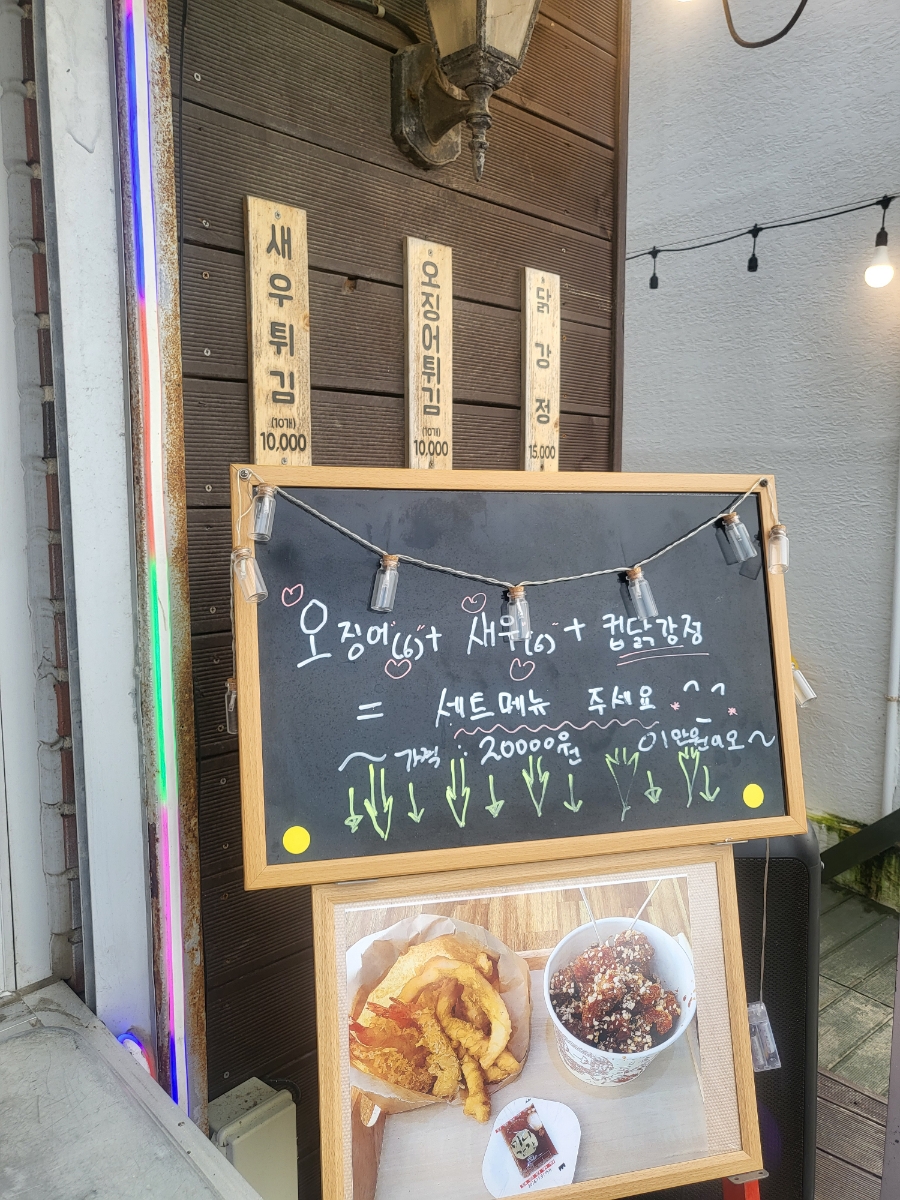 새우튀김
(10개)
10,000
오징어튀김
(10개)
10,000
닭강정
15,000
오징어(6)+ 새우(6)+ 컵닭강정
= 세트메뉴 주세요 ^_^
~가격 : 20000원 이만원a오~